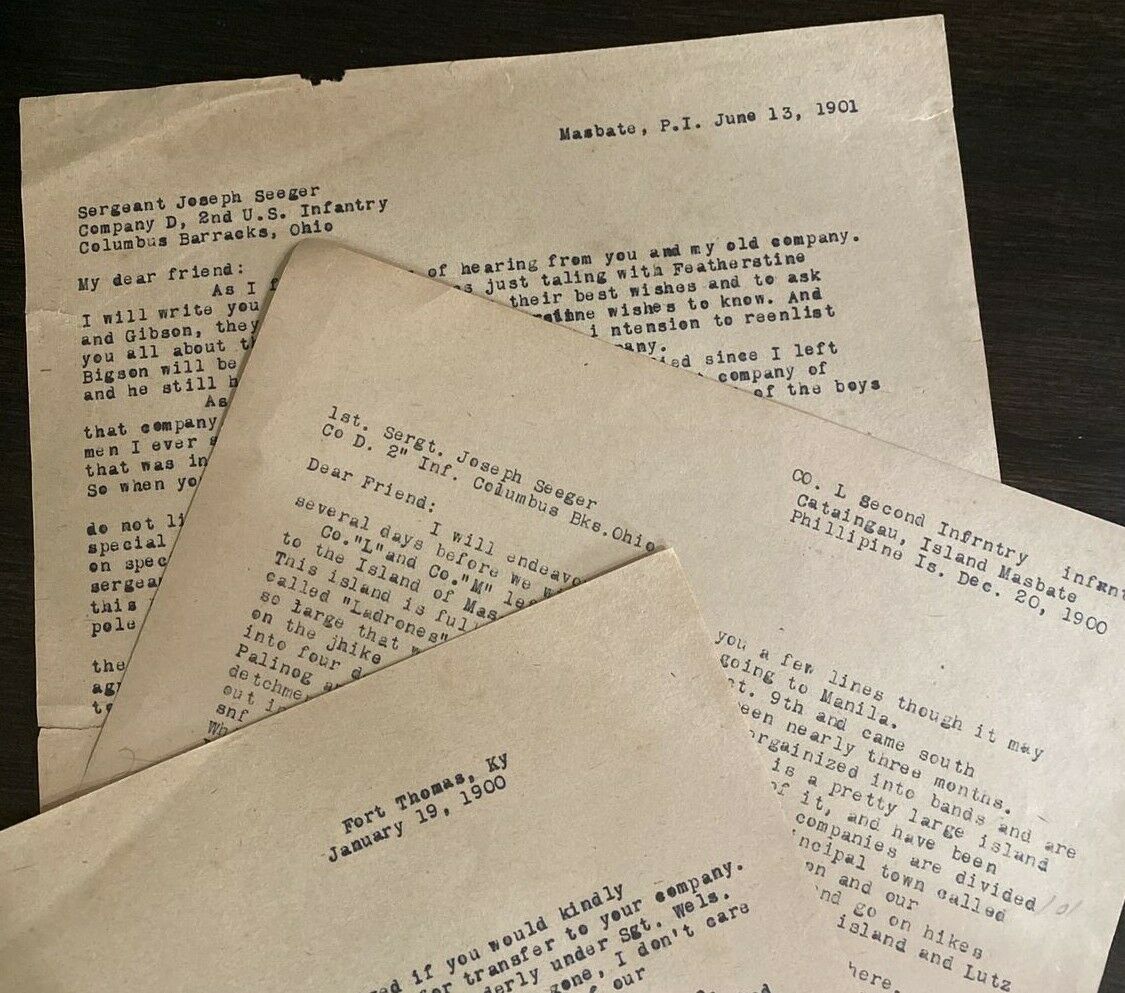 Masbate, P.I. June 13, 1901
Sergeant Joseph Seeger
Company D, 2nd U.S. Infantry
Columbus Barracks, Ohio
My dear friend:
As I of hearing from you and my old company.
I will write you just taling with Featherstine
and Gibson, they their best wishes and to ask
you all about wishes to know. And
Bigson will be i ntension to reenlist
and he still
since I left
As company of
that company of the boys
men I ever
that was in
So when
do not
special
on
this
pole
the
1st. Sergt. Joseph Seeger
Co D. 2" Inf. Columbus Bks.Ohio
CO. L Second Infrntry
Cataingau, Island Masbate
Phillipine Is. Dec. 20, 1900
Dear Friend:
I will you a few lines though it may
several days before we going to Manila.
Co."L"and Co."M" 9th and came south
to the Island of nearly three months.
This island is into bands and are
called "Ladrones" is a pretty large island
so large that of it, and have been
on the jhike companies are divided
into four town called
Palinog and our
go on hikes
out island and Lutz
snf here.
Fort Thomas, Ky
January 19, 1900
if you would kindly
transfer to your company.
under Sgt. Wels.
I don't care
our